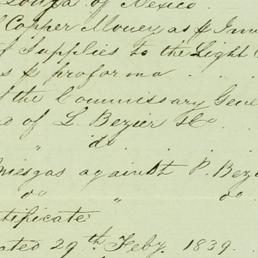 of Mexico
Copper Money as &
of Supplies to the Light
as & proforma
the Commissary Gene
of L. Bezier & Co
" do
against P. Bezi
do " do
tificate
ated 29th Feby. 1839.